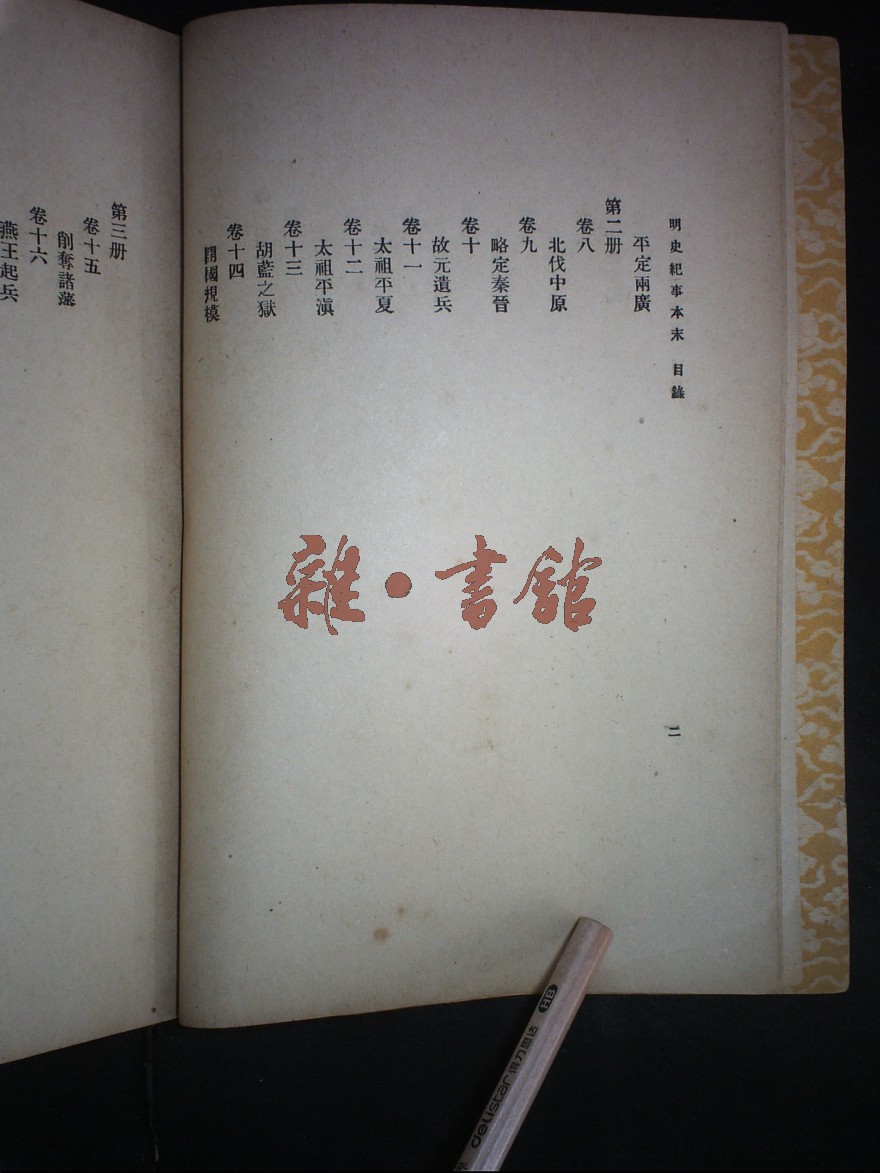 明史紀事本末 目錄
平定兩廣
第二册
卷八
北伐中原
卷九
略定秦晉
卷十
故元遺兵
卷十一
太祖平夏
卷十二
太祖平滇
卷十三
胡藍之獄
卷十四
開國規模
二
第三册
卷十五
削奪諸藩
卷十六
燕王起兵
雜·書館
delistar 得力思达 HB